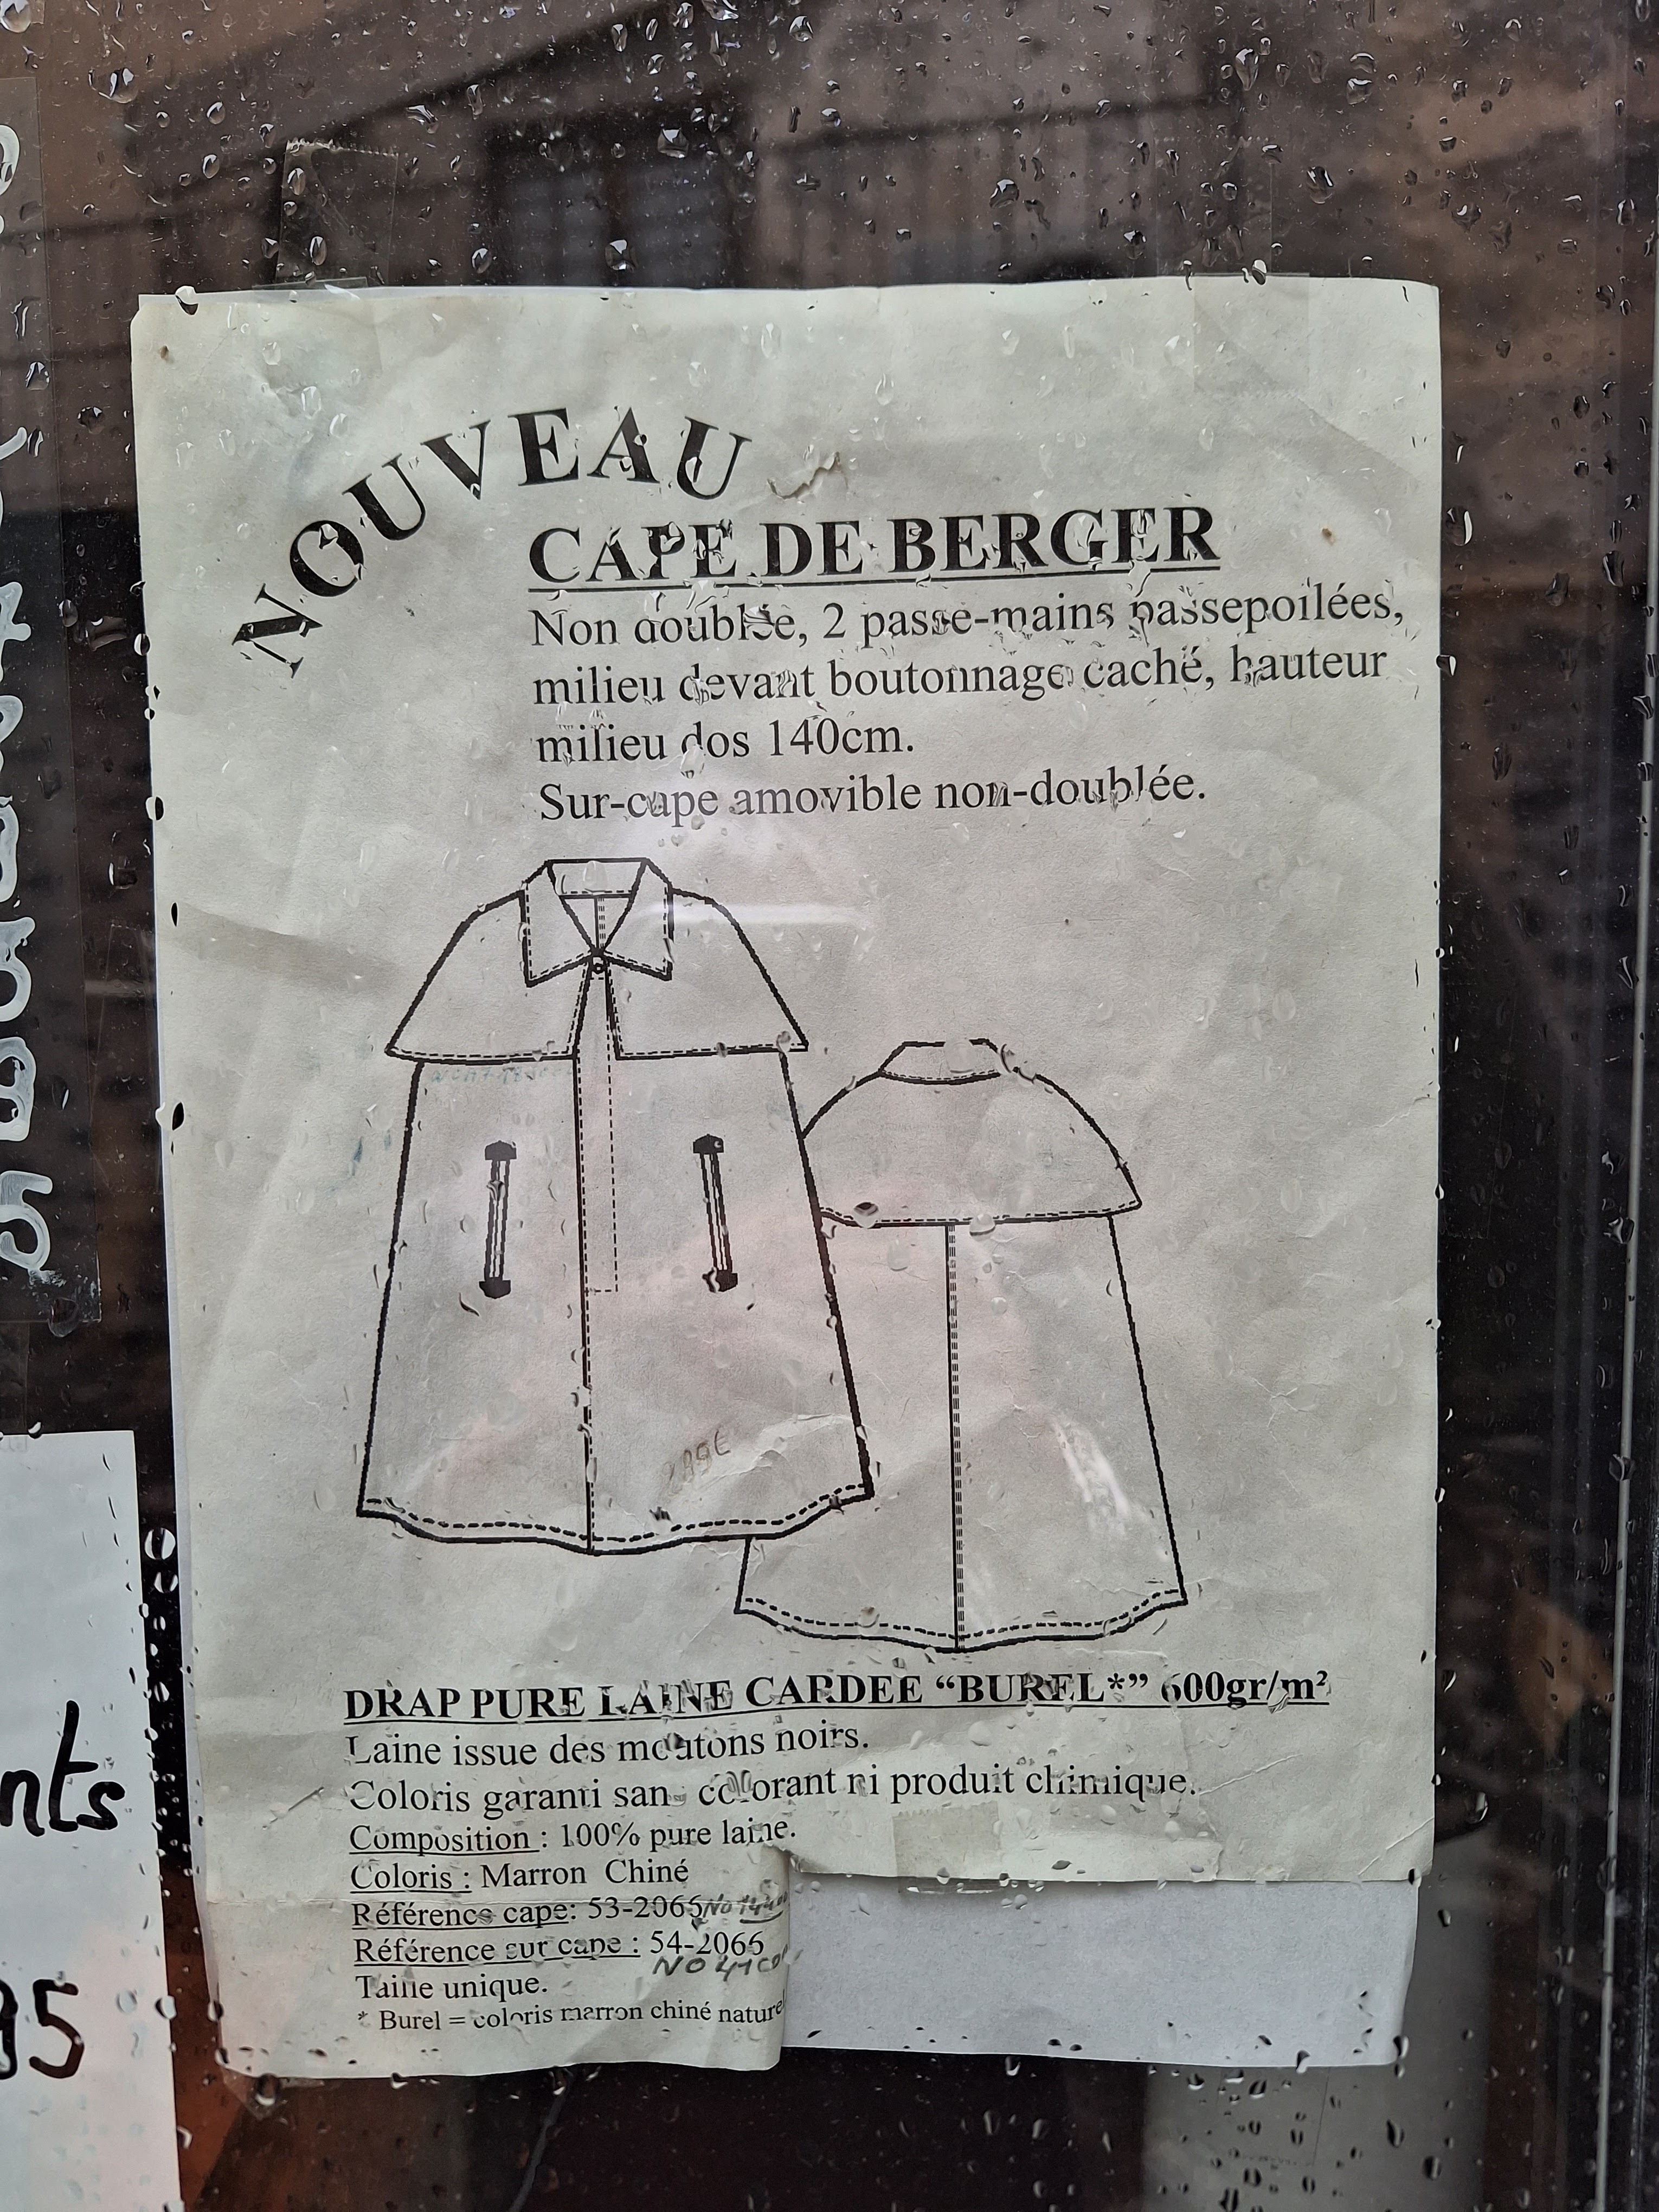 NOUVEAU
CAPE DE BERGER
Non doublée, 2 passe-mains passepoilées,
milieu devant boutonnage caché, hauteur
milieu dos 140cm.
Sur-cape amovible non-doublée.
DRAP PURE LAINE CARDEE “BUREL*” 600gr/m²
Laine issue des moutons noirs.
Coloris garanti sans colorant ni produit chimique.
Composition : 100% pure laine.
Coloris : Marron Chiné
Référence cape: 53-2065
Référence sur cape : 54-2066
Taille unique.
* Burel = coloris marron chiné nature
nts